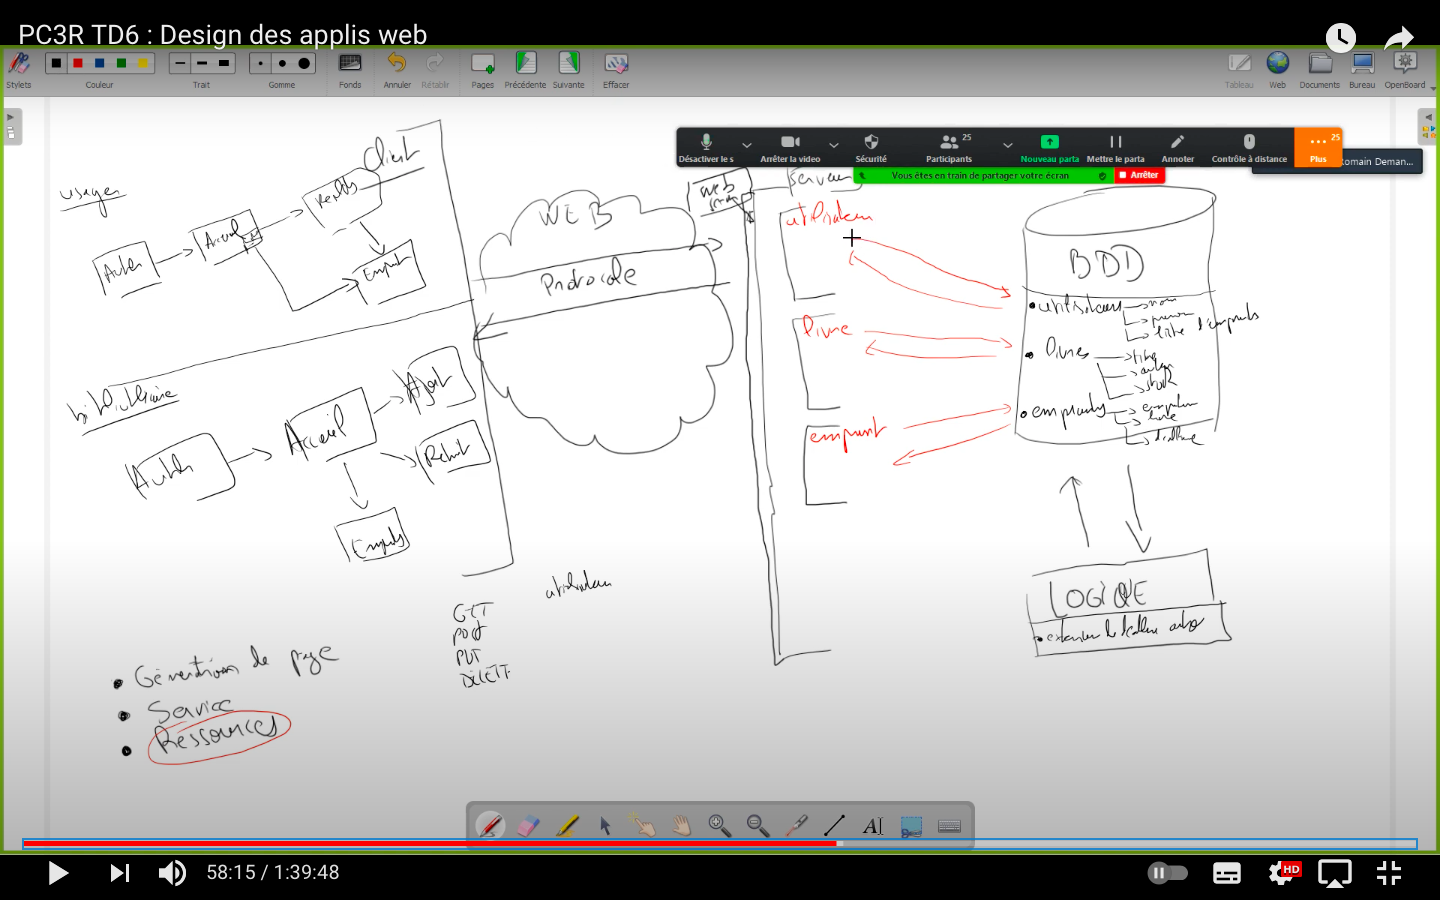 PC3R TD6 : Design des applis web
Stylets
Couleur
Trait
Gomme
Fonds
Annuler
Rétablir
Pages
Précédente
Suivante
Effacer
Tableau
Web
Documents
Bureau
OpenBoard
Désactiver le s
Arrêter la video
Sécurité
Participants
25
Nouveau parta
Mettre le parta
Annoter
Contrôle à distance
Plus
25
Vous êtes en train de partager votre écran
Arrêter
omain Deman...
Client
usager
Accueil
Emprunt
WEB
Protocole
web
serveur
utilisateur
livre
emprunt
BDD
utilisateurs
nom
prenom
liste d'emprunts
livres
titre
auteur
stock
emprunts
LOGIQUE
bibliothécaire
Accueil
Ajout
Retrait
Emprunts
utilisateur
GET
POST
PUT
DELETE
Générations de page
Service
Ressources
58:15 / 1:39:48
HD